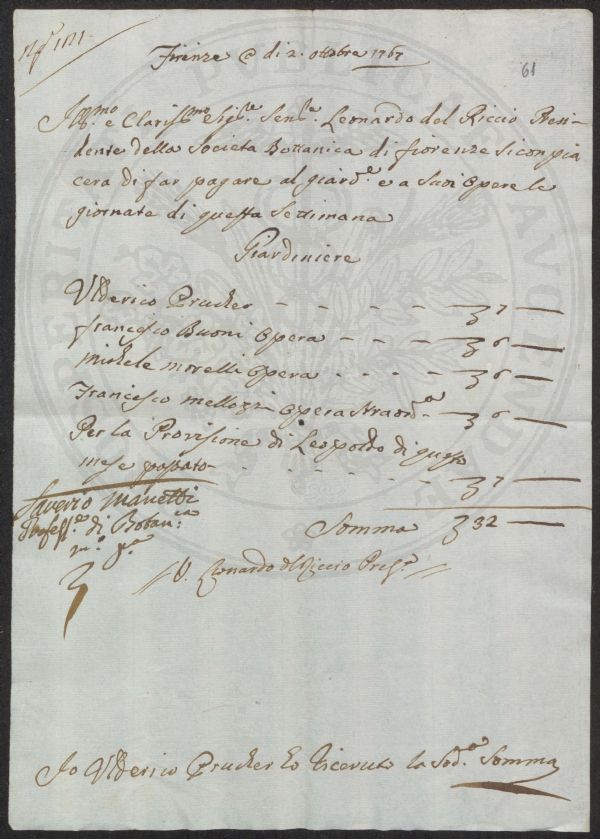 Firenze @ di 2. ottobre 1767
61
Ill:mo e Clariss:mo Sig:re Sen:re Leonardo del Riccio Presi-
dente della Societa Bottanica di fiorenze Si conpia
cera di far pagare al giard:re e a Suoi Opere le
giornate di questa Settimana
Giardiniere
Ulderico Prucker - - - - 7 —
francesco Buoni Opera - - - 6 —
Michele Morelli Opera - - - - 6 —
Francesco Mellozzi Opera Straord:a - 6 —
Per la Provisione di Leopoldo di
mese passato - - - - - - 7 —
Saverio Manetti
Profess:e di Botan:ca
Somma 32 —
V. Leonardo del Riccio Pres:e
Io Ulderico Prucker ho Riceruto la Sod:a Somma